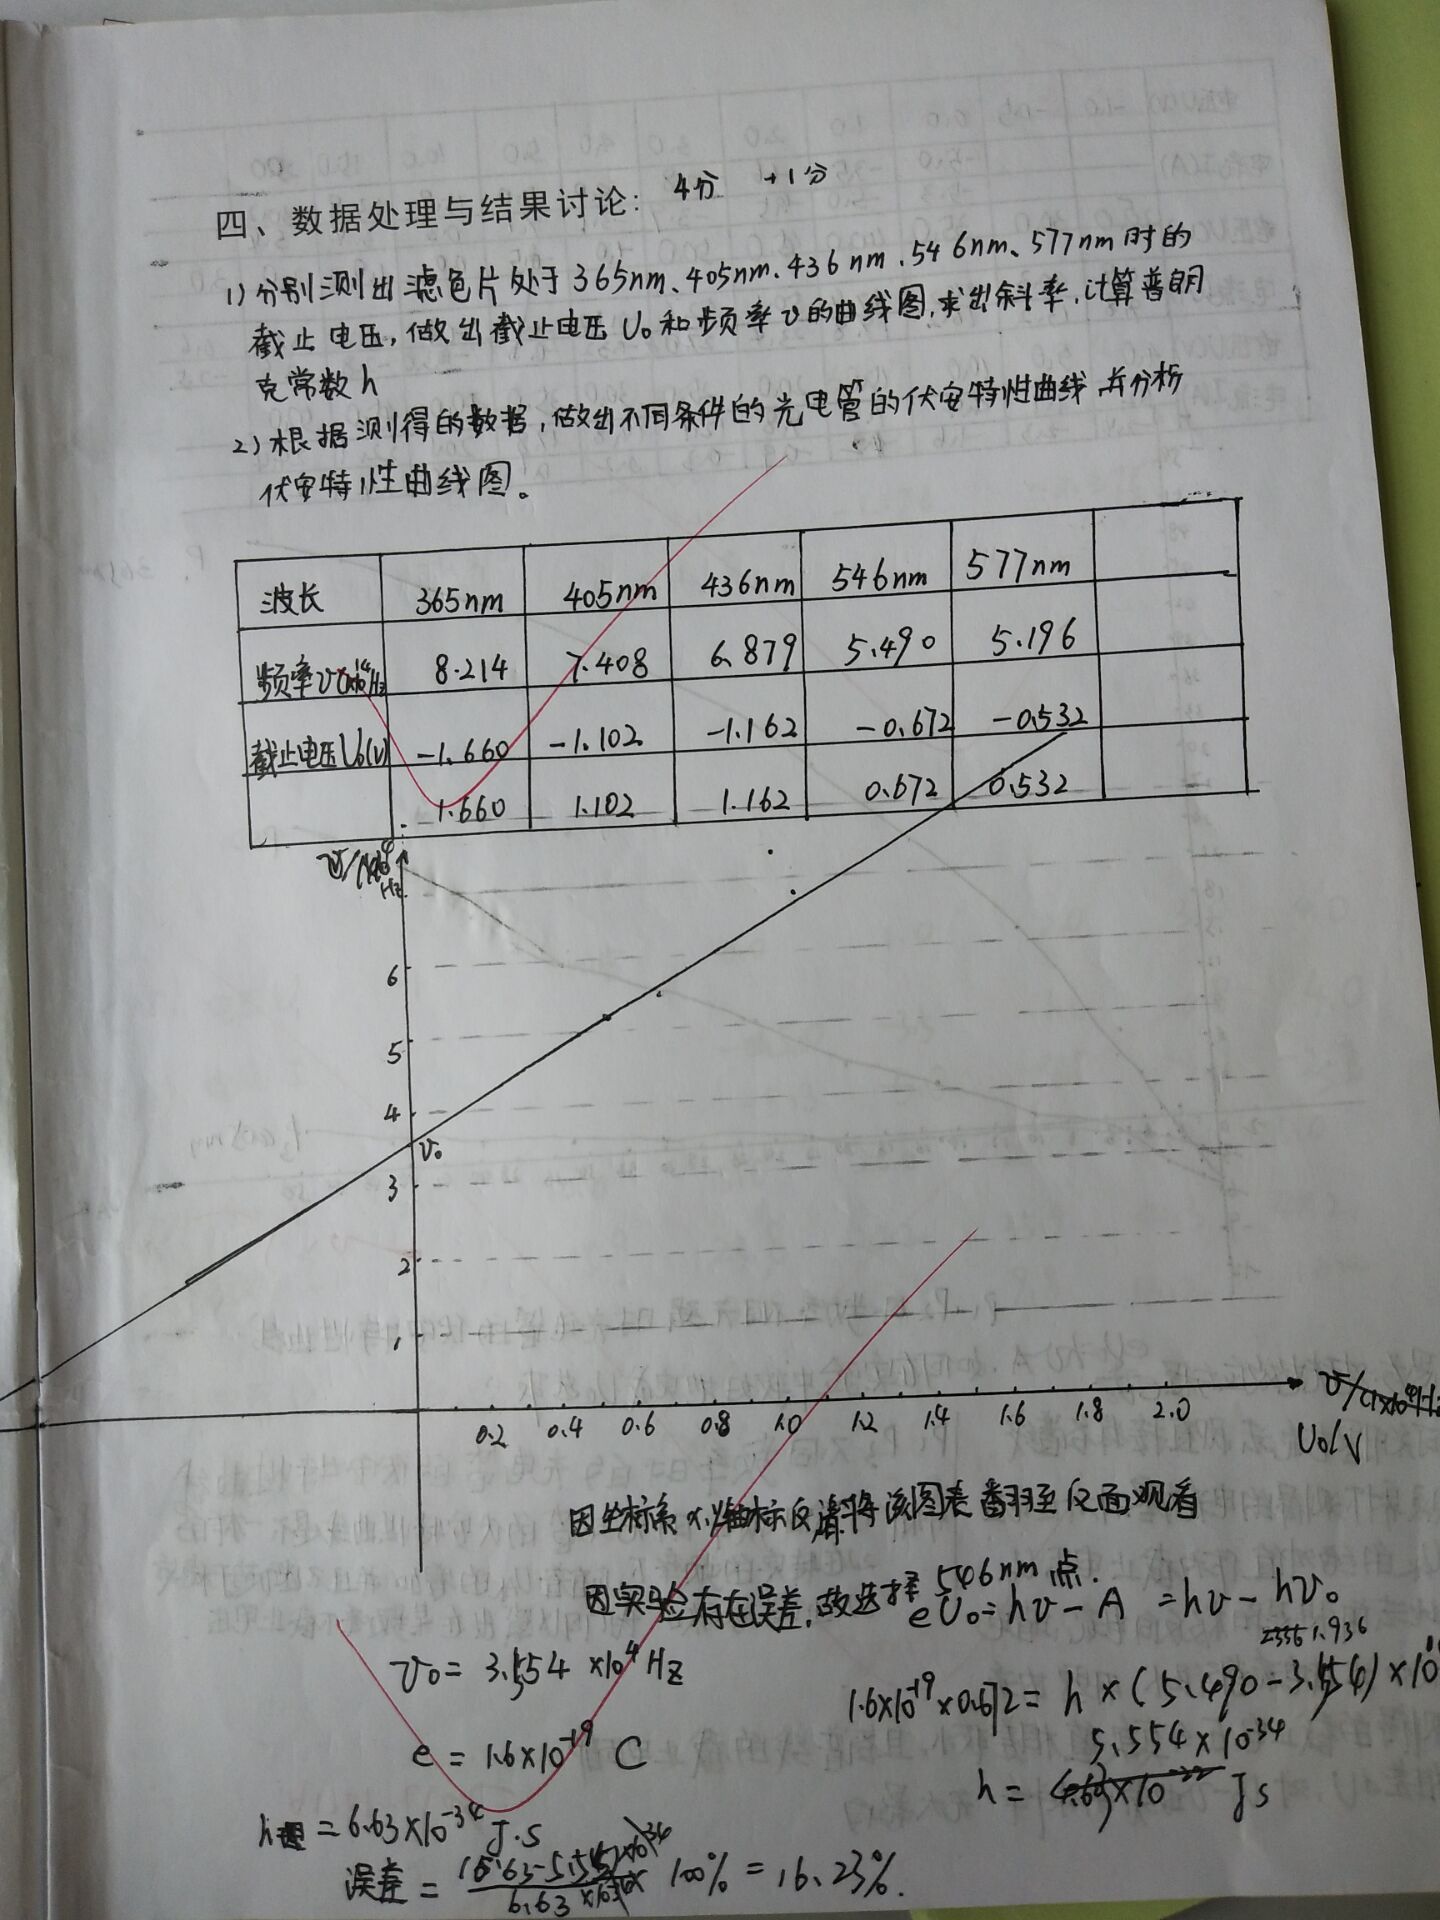 四、数据处理与结果讨论: 4分 +1分
1) 分别测出滤色片处于365nm、405nm、436nm、546nm、577nm时的
截止电压,做出截止电压U₀和频率υ的曲线图,求出斜率,计算普朗
克常数h
2) 根据测得的数据,做出不同条件的光电管的伏安特性曲线并分析
伏安特性曲线图。
波长 365nm 405nm 436nm 546nm 577nm
频率υ(×10¹⁴Hz) 8.214 7.408 6.879 5.490 5.196
截止电压U₀(V) -1.660 -1.102 -1.162 -0.672 -0.532
1.660 1.102 1.162 0.672 0.532
6
5
4
υ₀
3
2
1
0.2 0.4 0.6 0.8 1.0 1.2 1.4 1.6 1.8 2.0
U₀/V
因坐标系 轴标反请将该图表翻至反面观看
因实验存在误差,故选择546nm点.
eU₀=hυ-A =hυ-hυ₀
υ₀= 3.554 ×10⁴Hz
1.936
1.6×10⁻¹⁹×0.672= h×(5.490-3.554)×10
e = 1.6×10⁻¹⁹ C
5.554×10⁻³⁴
h= Js
h理 =6.63×10⁻³⁴J·S
误差 = 100% = 16.23%.